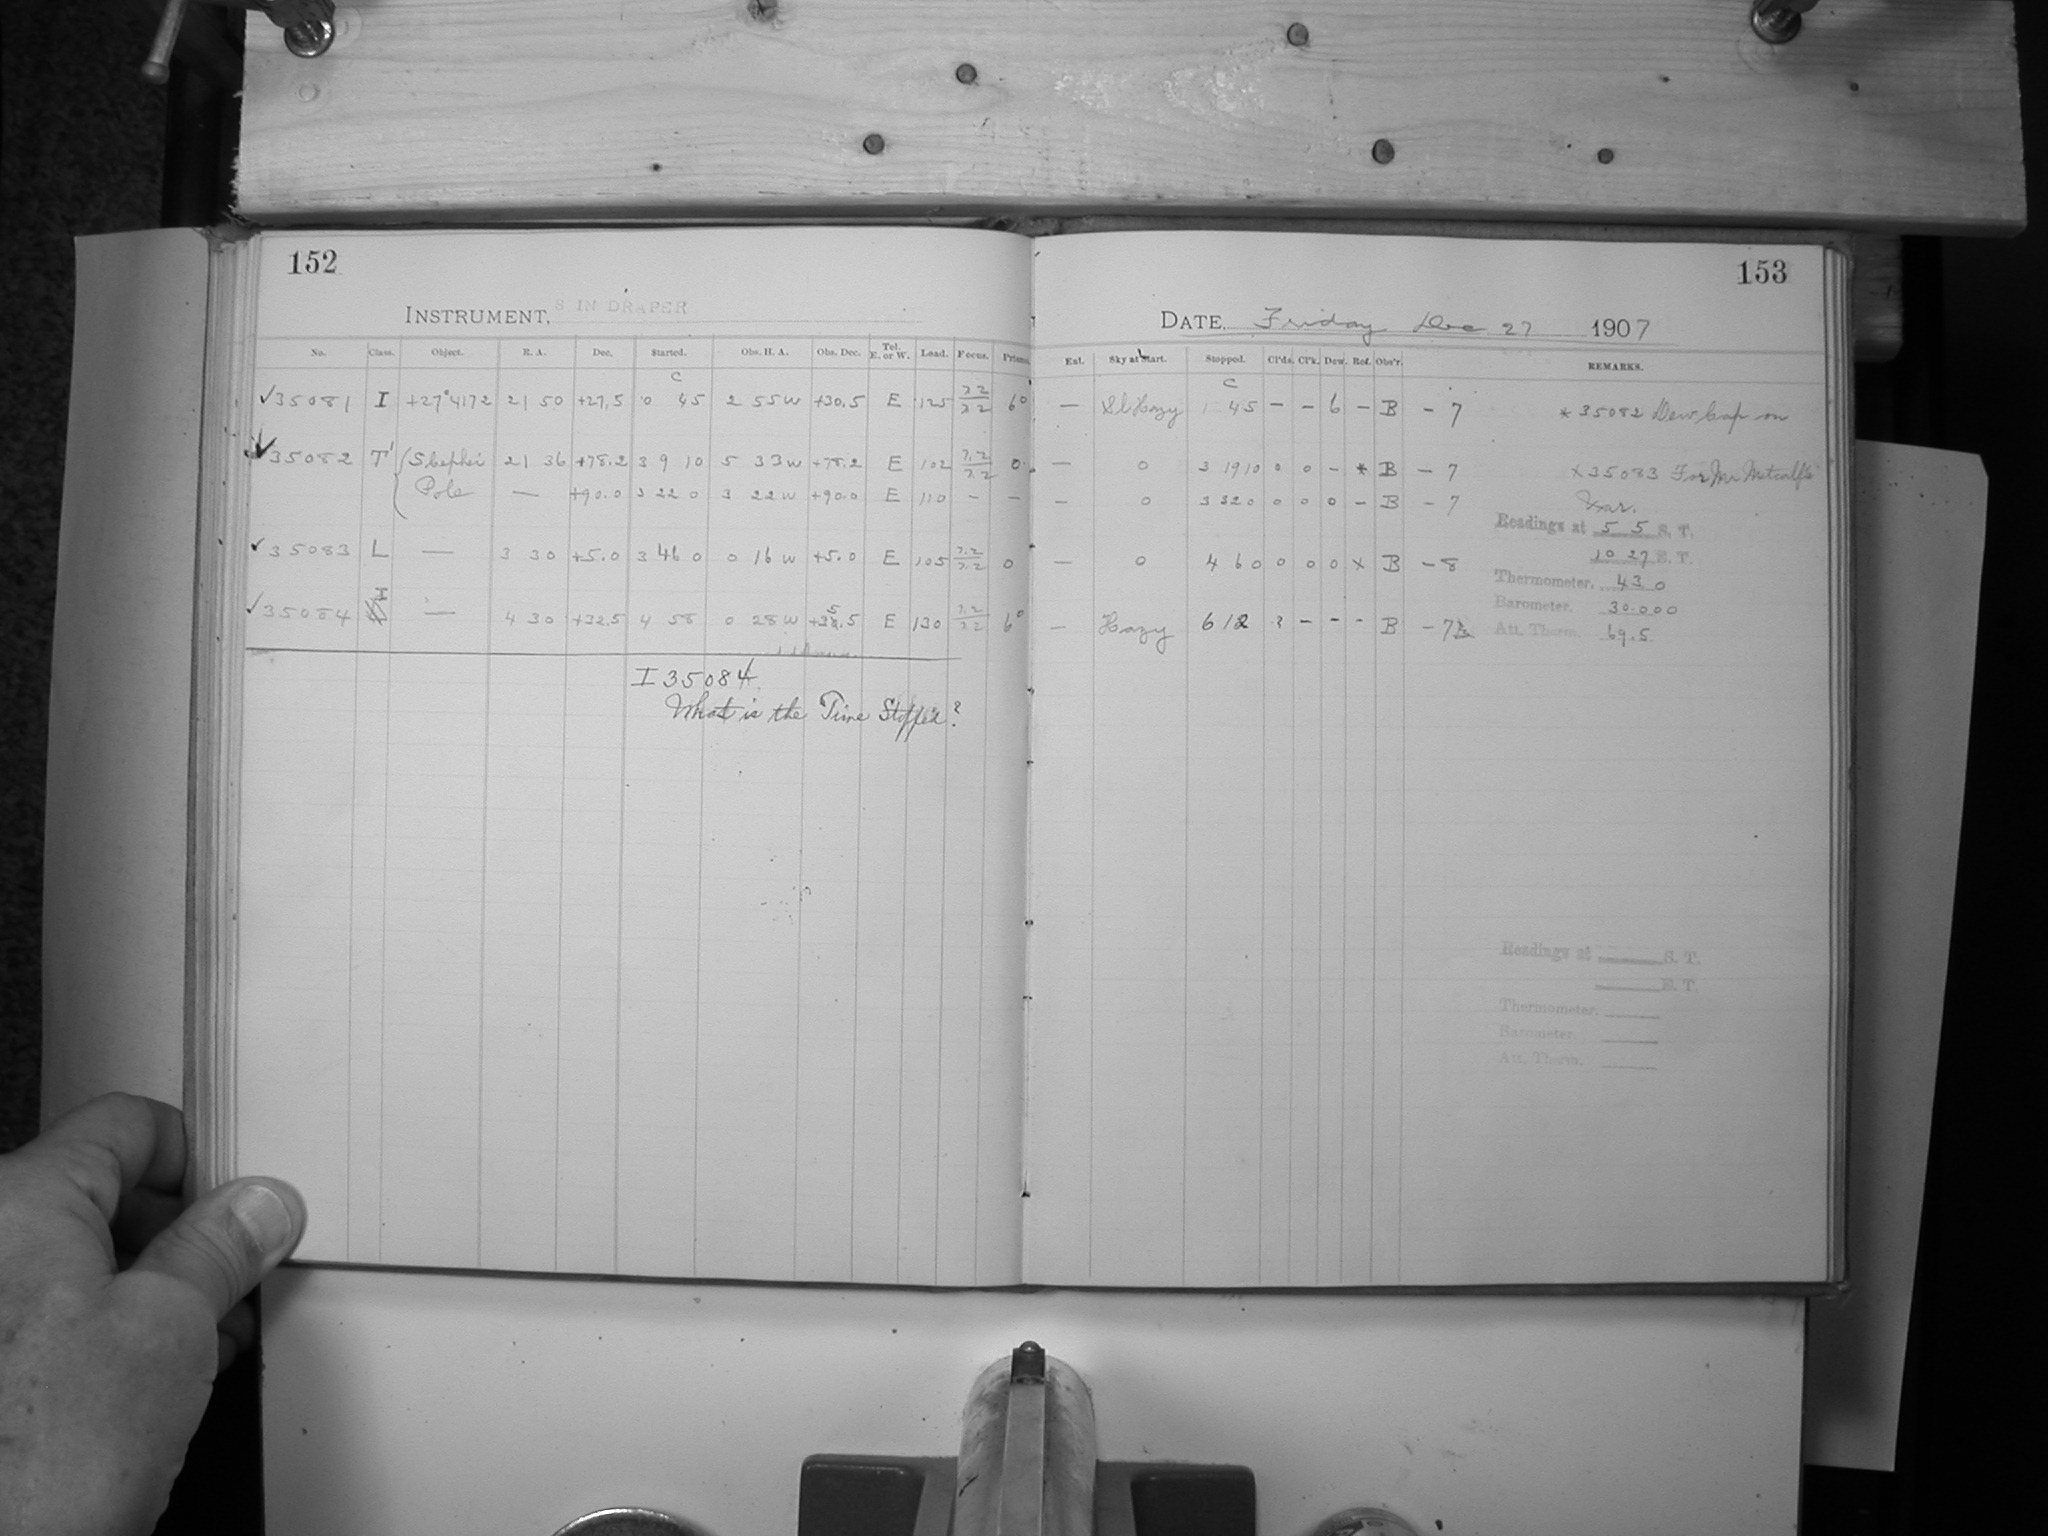 152
INSTRUMENT. 8 IN DRAPER
No. Class. Object. R. A. Dec. Started. Obs. H. A. Obs. Dec. Tel. E. or W. Load. Focus. Prisms.
✓35081 I +27°4172 21 50 +27.5 0 45 2 55W +30.5 E 125 6°
✓35082 T' S Cephei 21 36 +78.2 3 9 10 5 33W +78.2 E 102 7.2/7.2 0
Pole — +90.0 3 22 0 3 22W +90.0 E 110 — —
✓35083 L — 3 30 +5.0 3 46 0 0 16W +5.0 E 105 7.2/7.2 0
✓35084 I — 4 30 +32.5 4 58 0 28W E 130 6°
I 35084
What is the Time Stopped?
153
DATE. Friday Dec 27 1907
Ent. Sky at Start. Stopped. Cl'ds. Cl'k. Dew. Ref. Obs'r. REMARKS.
— Sl Hazy 1 45 — — 6 — B — 7 * 35082 Dew Cap on
— 0 3 19 10 0 0 — * B — 7 x 35083 For Mr Metcalf's
— 0 3 32 0 0 0 0 — B — 7 Var.
Readings at 5 5 S. T.
— 0 4 6 0 0 0 0 x B — 8 10 27 S. T.
Thermometer. 43.0
Barometer. 30.000
— Hazy 6 12 ? — — — B — 7 Att. Therm. 69.5
Readings at S. T.
E. T.
Thermometer.
Barometer.
Att. Therm.